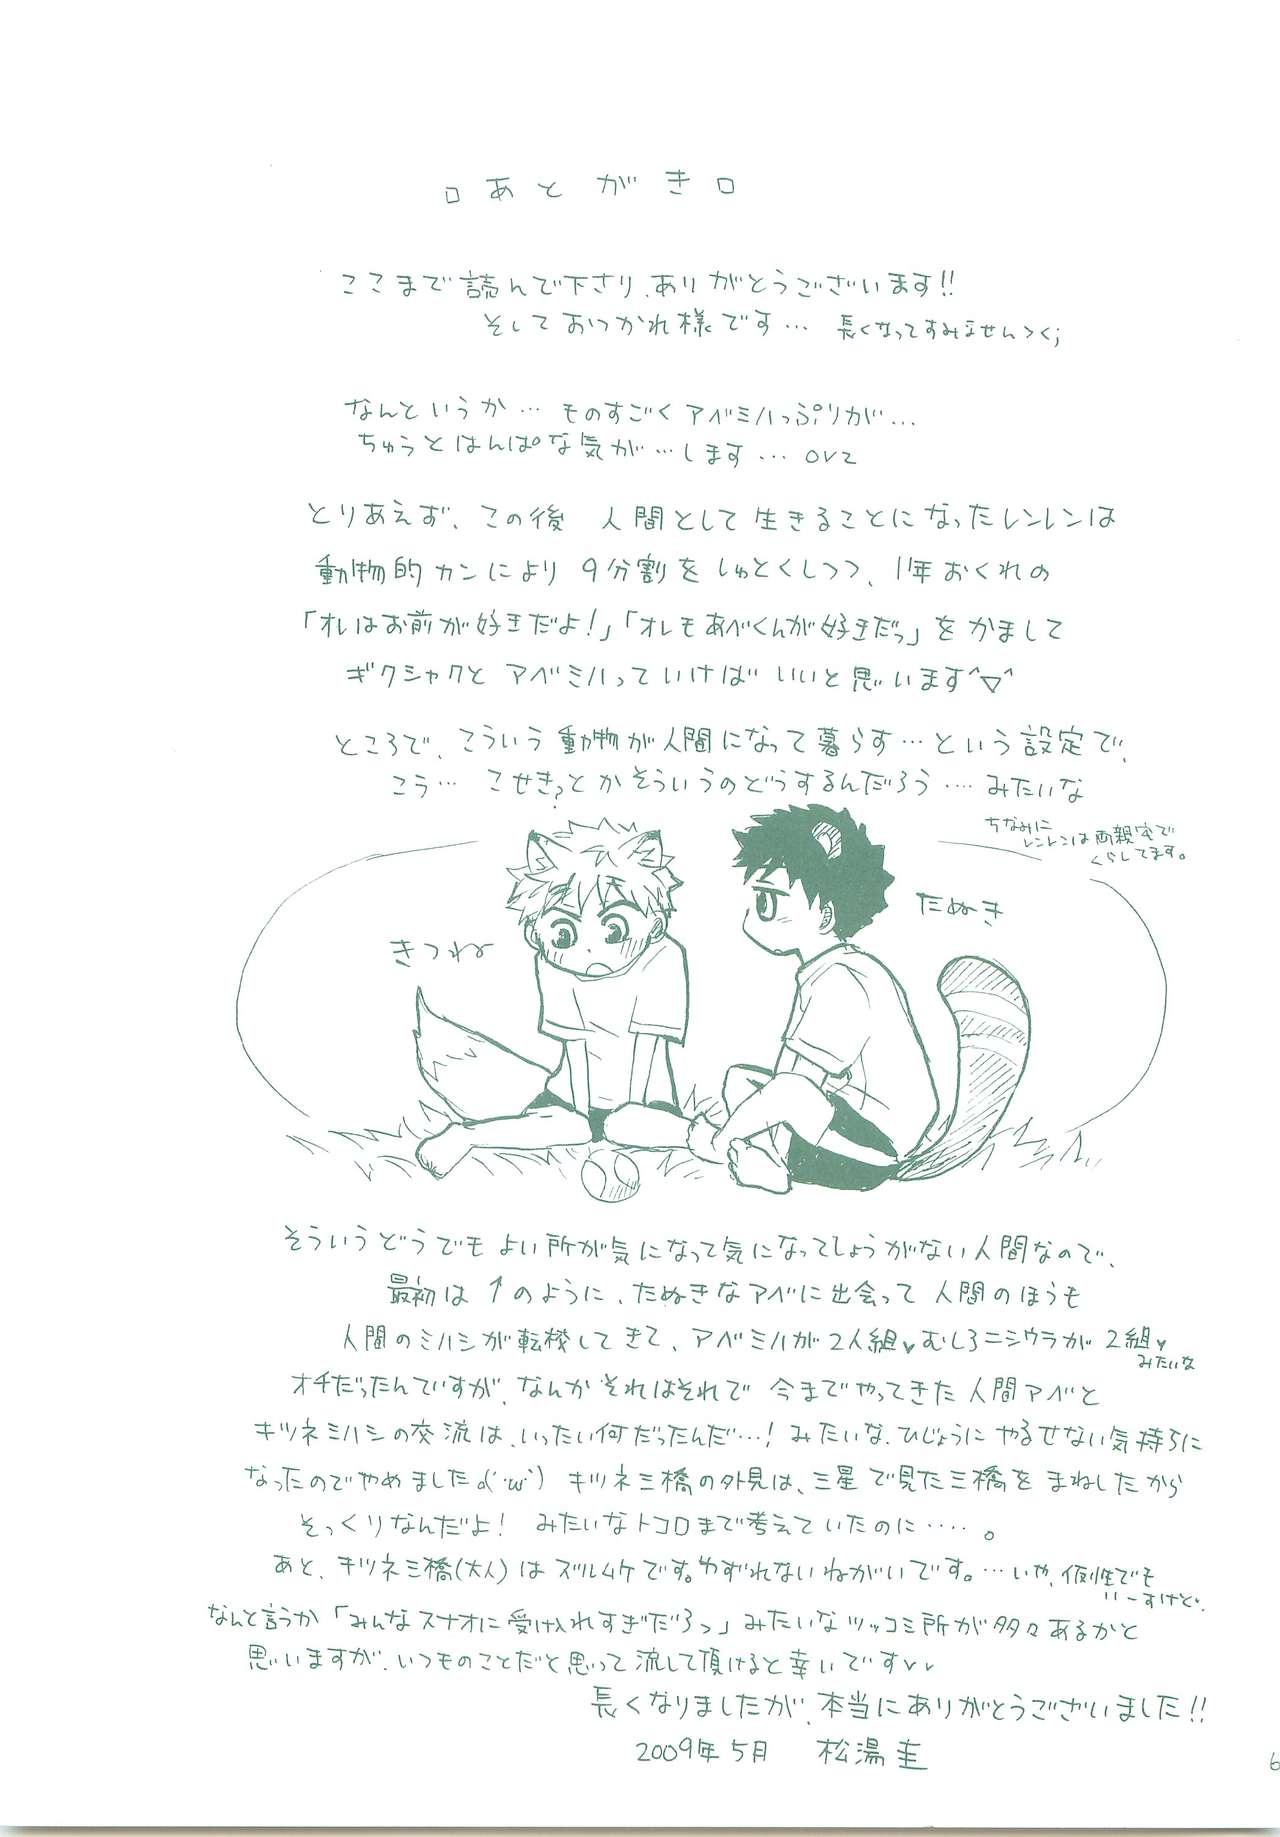 □あとがき□
ここまで読んで下さり、ありがとうございます!!
そしておつかれ様です… 長くなってすみません＞＜;
なんというか… ものすごくアベミハっぷりが…
ちゅうとはんぱな気が…します… orz
とりあえず、この後 人間として生きることになったレンレンは
動物的カンにより 9分割をしゅとくしつつ、1年おくれの
「オレはお前が好きだよ!」「オレもあべくんが好きだっ」をかまして
ギクシャクと アベミハっていけば いいと思います^▽^
ところで、こういう動物が人間になって暮らす…という設定で、
こう… こせき?とかそういうのどうするんだろう…. みたいな
ちなみに
レンレンは両親宅で
くらしてます。
きつね
たぬき
そういうどうでもよい所が気になって気になってしょうがない人間なので、
最初は ↑のように、たぬきなアベに出会って 人間のほうも
人間のミハシが転校してきて、アベミハが2人組♥むしろニシウラが 2組♥
みたいな
オチだったんですが、なんかそれはそれで 今までやってきた人間アベと
キツネミハシの交流は、いったい何だったんだ…! みたいな、ひじょうにやるせない気持ちに
なったのでやめましたd(´･ω･`) キツネ三橋の外見は、三星で見た三橋を まねしたから
そっくりなんだよ! みたいなトコロまで考えていたのに…..。
なんと言うか「みんなスナオに受け入れすぎだろっ」みたいなツッコミ所が多々あるかと
思いますが、いつものことだと思って流して頂けると幸いです
長くなりましたが、本当にありがとうございました!!
2009年5月 松湯圭
6